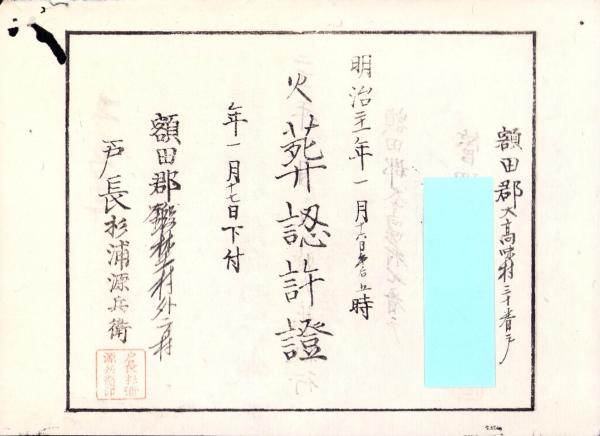 額田郡大高味村三十番戸
明治廿一年一月十六日午后五時
火葬認許證
年一月十七日下付
額田郡村外村
戸長杉浦源兵衛
戸長杉浦
源兵衛印